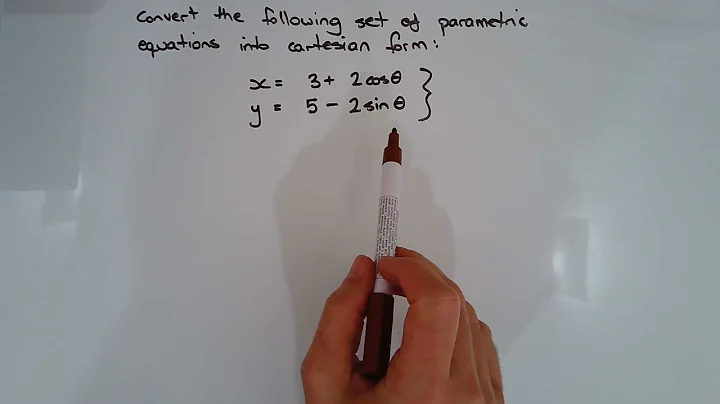 Convert the following set of parametric
equations into cartesian form:
x = 3 + 2cosθ }
y = 5 - 2sinθ